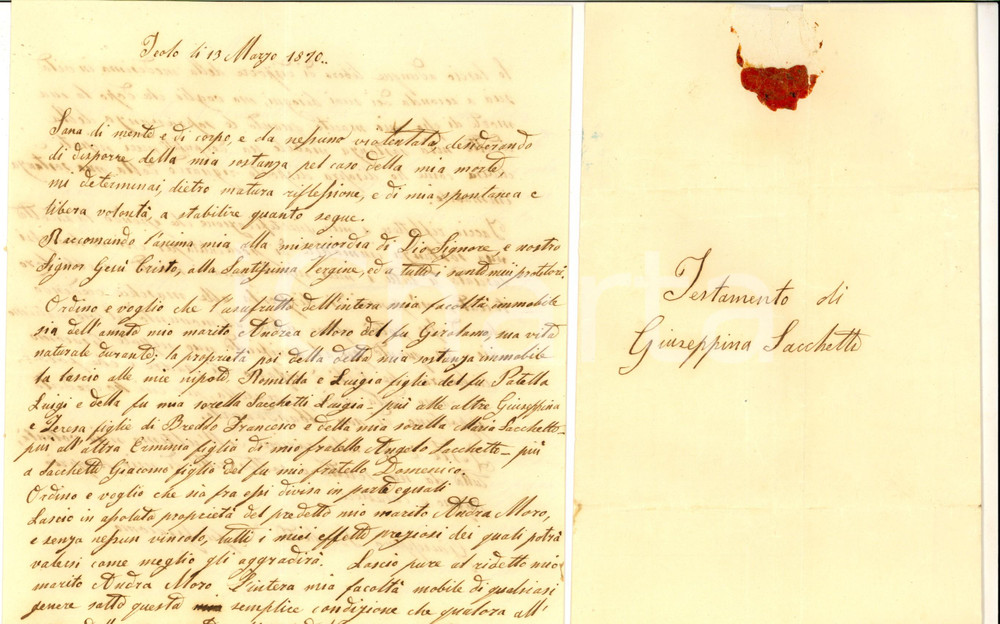 Teolo li 13 Marzo 1870..
Sana di mente e di corpo, e da nessuno violentata, desiderando
di disporre della mia sostanza pel caso della mia morte,
mi determinai, dietro matura riflessione, e di mia spontanea e
libera volontà, a stabilire quanto segue.
Raccomando l'anima mia alla misericordia di Dio Signore, e nostro
Signor Gesù Cristo, alla Santissima Vergine, ed a tutti i santi miei protettori.
Ordino e voglio che l'usufrutto dell'intera mia facoltà immobile
sia dell'amato mio marito Andrea Moro del fu Girolamo, sua vita
naturale durante; la proprietà poi della detta mia sostanza immobile
la lascio alle mie nipoti Romilda e Luigia figlie del fu Patella
Luigi e della fu mia sorella Sacchetti Luigia - più alle altre Giuseppina
e Teresa figlie di Breddo Francesco e della mia sorella Maria Sacchetto -
più all'altra Erminia figlia di mio fratello Angelo Sacchetto - più
a Sacchetti Giacomo figlio del fu mio fratello Domenico.
Ordino e voglio che sia fra essi divisa in parte eguali
Lascio in assoluta proprietà del predetto mio marito Andrea Moro,
e senza nessun vincolo, tutti i miei effetti preziosi dei quali potrà
valersi come meglio gli aggradirà. Lascio pure al ridetto mio
marito Andrea Moro l'intera mia facoltà mobile di qualsiasi
genere sotto questa semplice condizione che qualora all'
Testamento di
Giuseppina Sacchetti